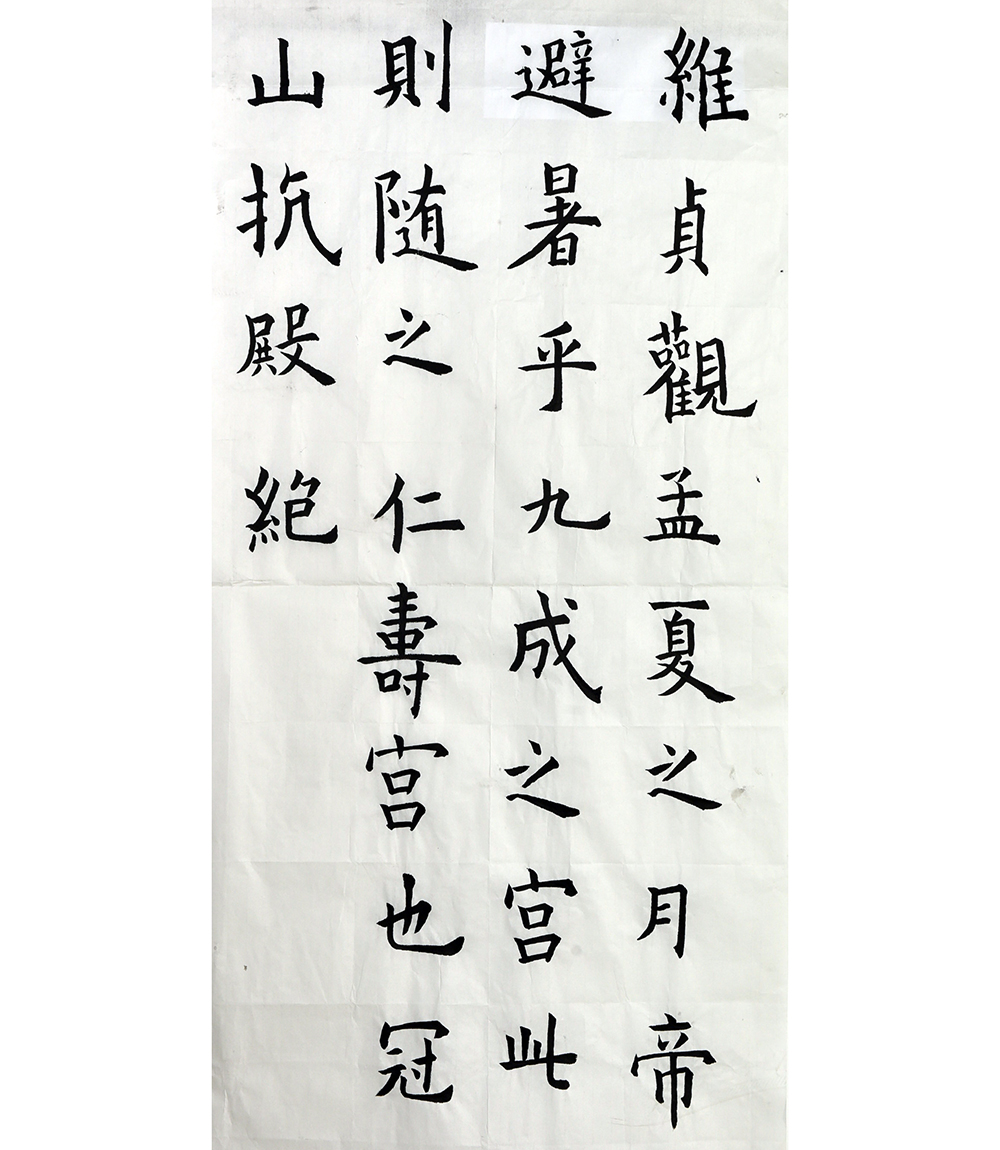 維貞觀孟夏之月帝
避暑乎九成之宮此
則随之仁壽宮也冠
山抗殿絕